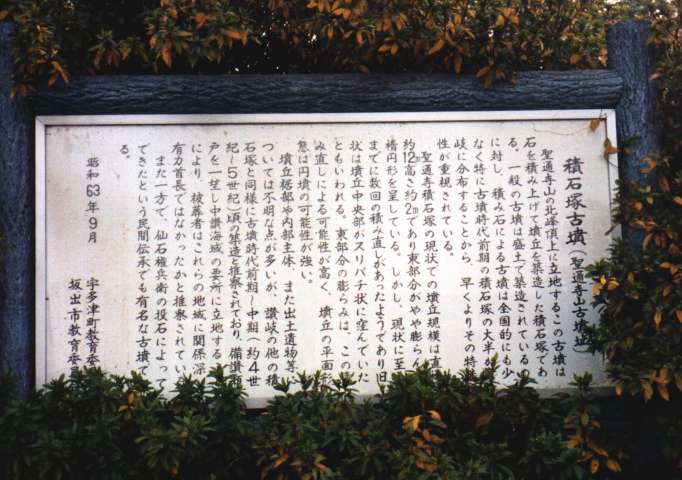 積石塚古墳（聖通寺山古墳址）
聖通寺山の北峰頂上に立地するこの古墳は
石を積み上げて墳丘を築造した積石塚であ
る。一般の古墳は盛土で築造されているの
に対し、積み石による古墳は全国的にも少
なく特に古墳時代前期の積石塚の大半が
岐に分布することから、早くよりその特
性が重視されている。
聖通寺積石塚の現状での墳丘規模は直
約12m高さ約2mであり東部分がやや膨らん
楕円形を呈している。しかし、現状に至
までに数回の積み直しがあったようであり旧
状は墳丘中央部がスリバチ状に窪んでいた
ともいわれる。東部分の膨らみは、この
み直しによる可能性が高く、墳丘の平面形
態は円墳の可能性が強い。
墳丘裾部や内部主体、また出土遺物等に
ついては不明な点が多いが、讃岐の他の積
石塚と同様に古墳時代前期～中期（約4世
紀～5世紀）頃の築造と推察されており、備讃瀬
戸を一望し中讃海域の要所に立地する
により、被葬者はこれらの地域に関係深
有力首長ではなかったかと推察されてい
また一方で、仙石権兵衛の投石によって
できたという民間伝承でも有名な古墳で
る。
昭和63年9月
宇多津町教育委
坂出市教育委員